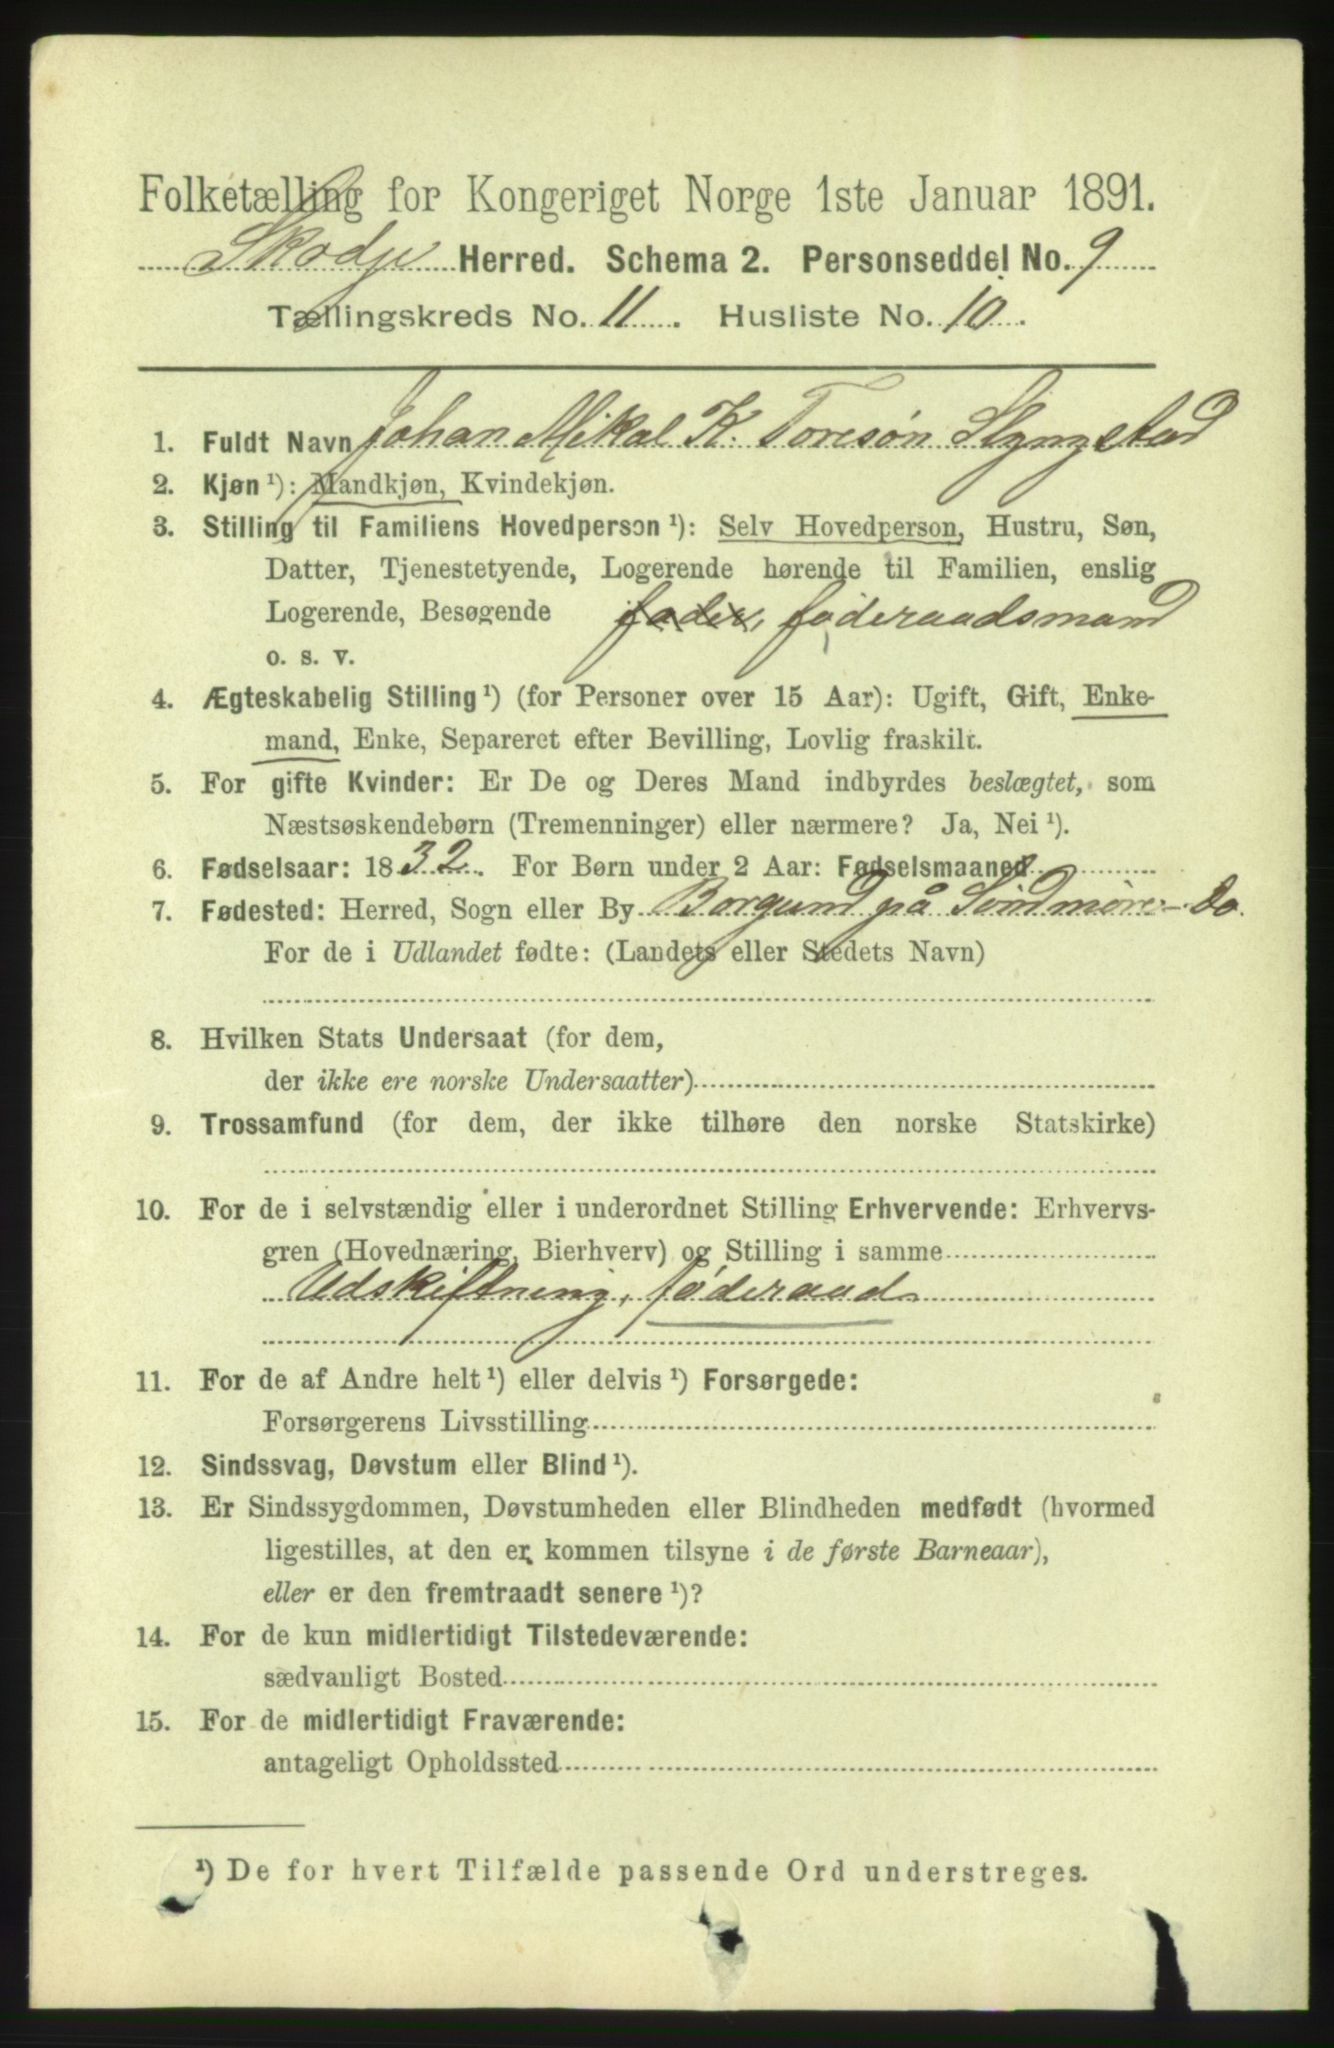 Folketælling for Kongeriget Norge 1ste Januar 1891.
Skodje Herred. Schema 2. Personseddel No. 9
Tællingskreds No. 11. Husliste No. 10.
1. Fuldt Navn Johan Mikal K. Toresøn Slyngstad
2. Kjøn ¹): Mandkjøn, Kvindekjøn.
3. Stilling til Familiens Hovedperson ¹): Selv Hovedperson, Hustru, Søn,
Datter, Tjenestetyende, Logerende hørende til Familien, enslig
Logerende, Besøgende fader, føderaadsmand
o. s. v.
4. Ægteskabelig Stilling ¹) (for Personer over 15 Aar): Ugift, Gift, Enke-
mand, Enke, Separeret efter Bevilling, Lovlig fraskilt.
5. For gifte Kvinder: Er De og Deres Mand indbyrdes beslægtet, som
Næstsøskendebørn (Tremenninger) eller nærmere? Ja, Nei ¹).
6. Fødselsaar: 1832. For Børn under 2 Aar: Fødselsmaaned
7. Fødested: Herred, Sogn eller By Borgund på Søndmøre - do.
For de i Udlandet fødte: (Landets eller Stedets Navn)
8. Hvilken Stats Undersaat (for dem,
der ikke ere norske Undersaatter)
9. Trossamfund (for dem, der ikke tilhøre den norske Statskirke)
10. For de i selvstændig eller i underordnet Stilling Erhvervende: Erhvervs-
gren (Hovednæring, Bierhverv) og Stilling i samme
Udskiftning, føderaad
11. For de af Andre helt ¹) eller delvis ¹) Forsørgede:
Forsørgerens Livsstilling
12. Sindssvag, Døvstum eller Blind ¹).
13. Er Sindssygdommen, Døvstumheden eller Blindheden medfødt (hvormed
ligestilles, at den er kommen tilsyne i de første Barneaar),
eller er den fremtraadt senere ¹)?
14. For de kun midlertidigt Tilstedeværende:
sædvanligt Bosted
15. For de midlertidigt Fraværende:
antageligt Opholdssted
¹) De for hvert Tilfælde passende Ord understreges.